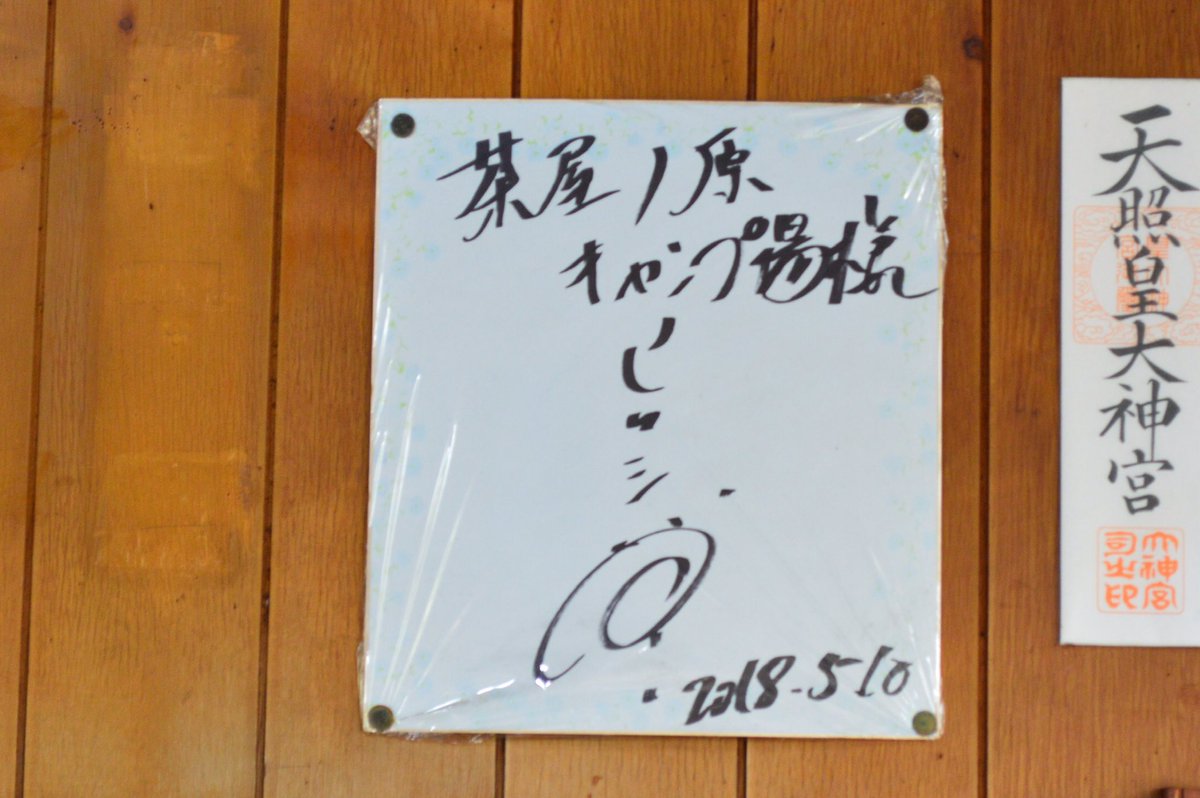 茶屋ノ原
キャンプ場様
ヒロシ
2018.5.10
天照皇大神宮
大神宮
司之印